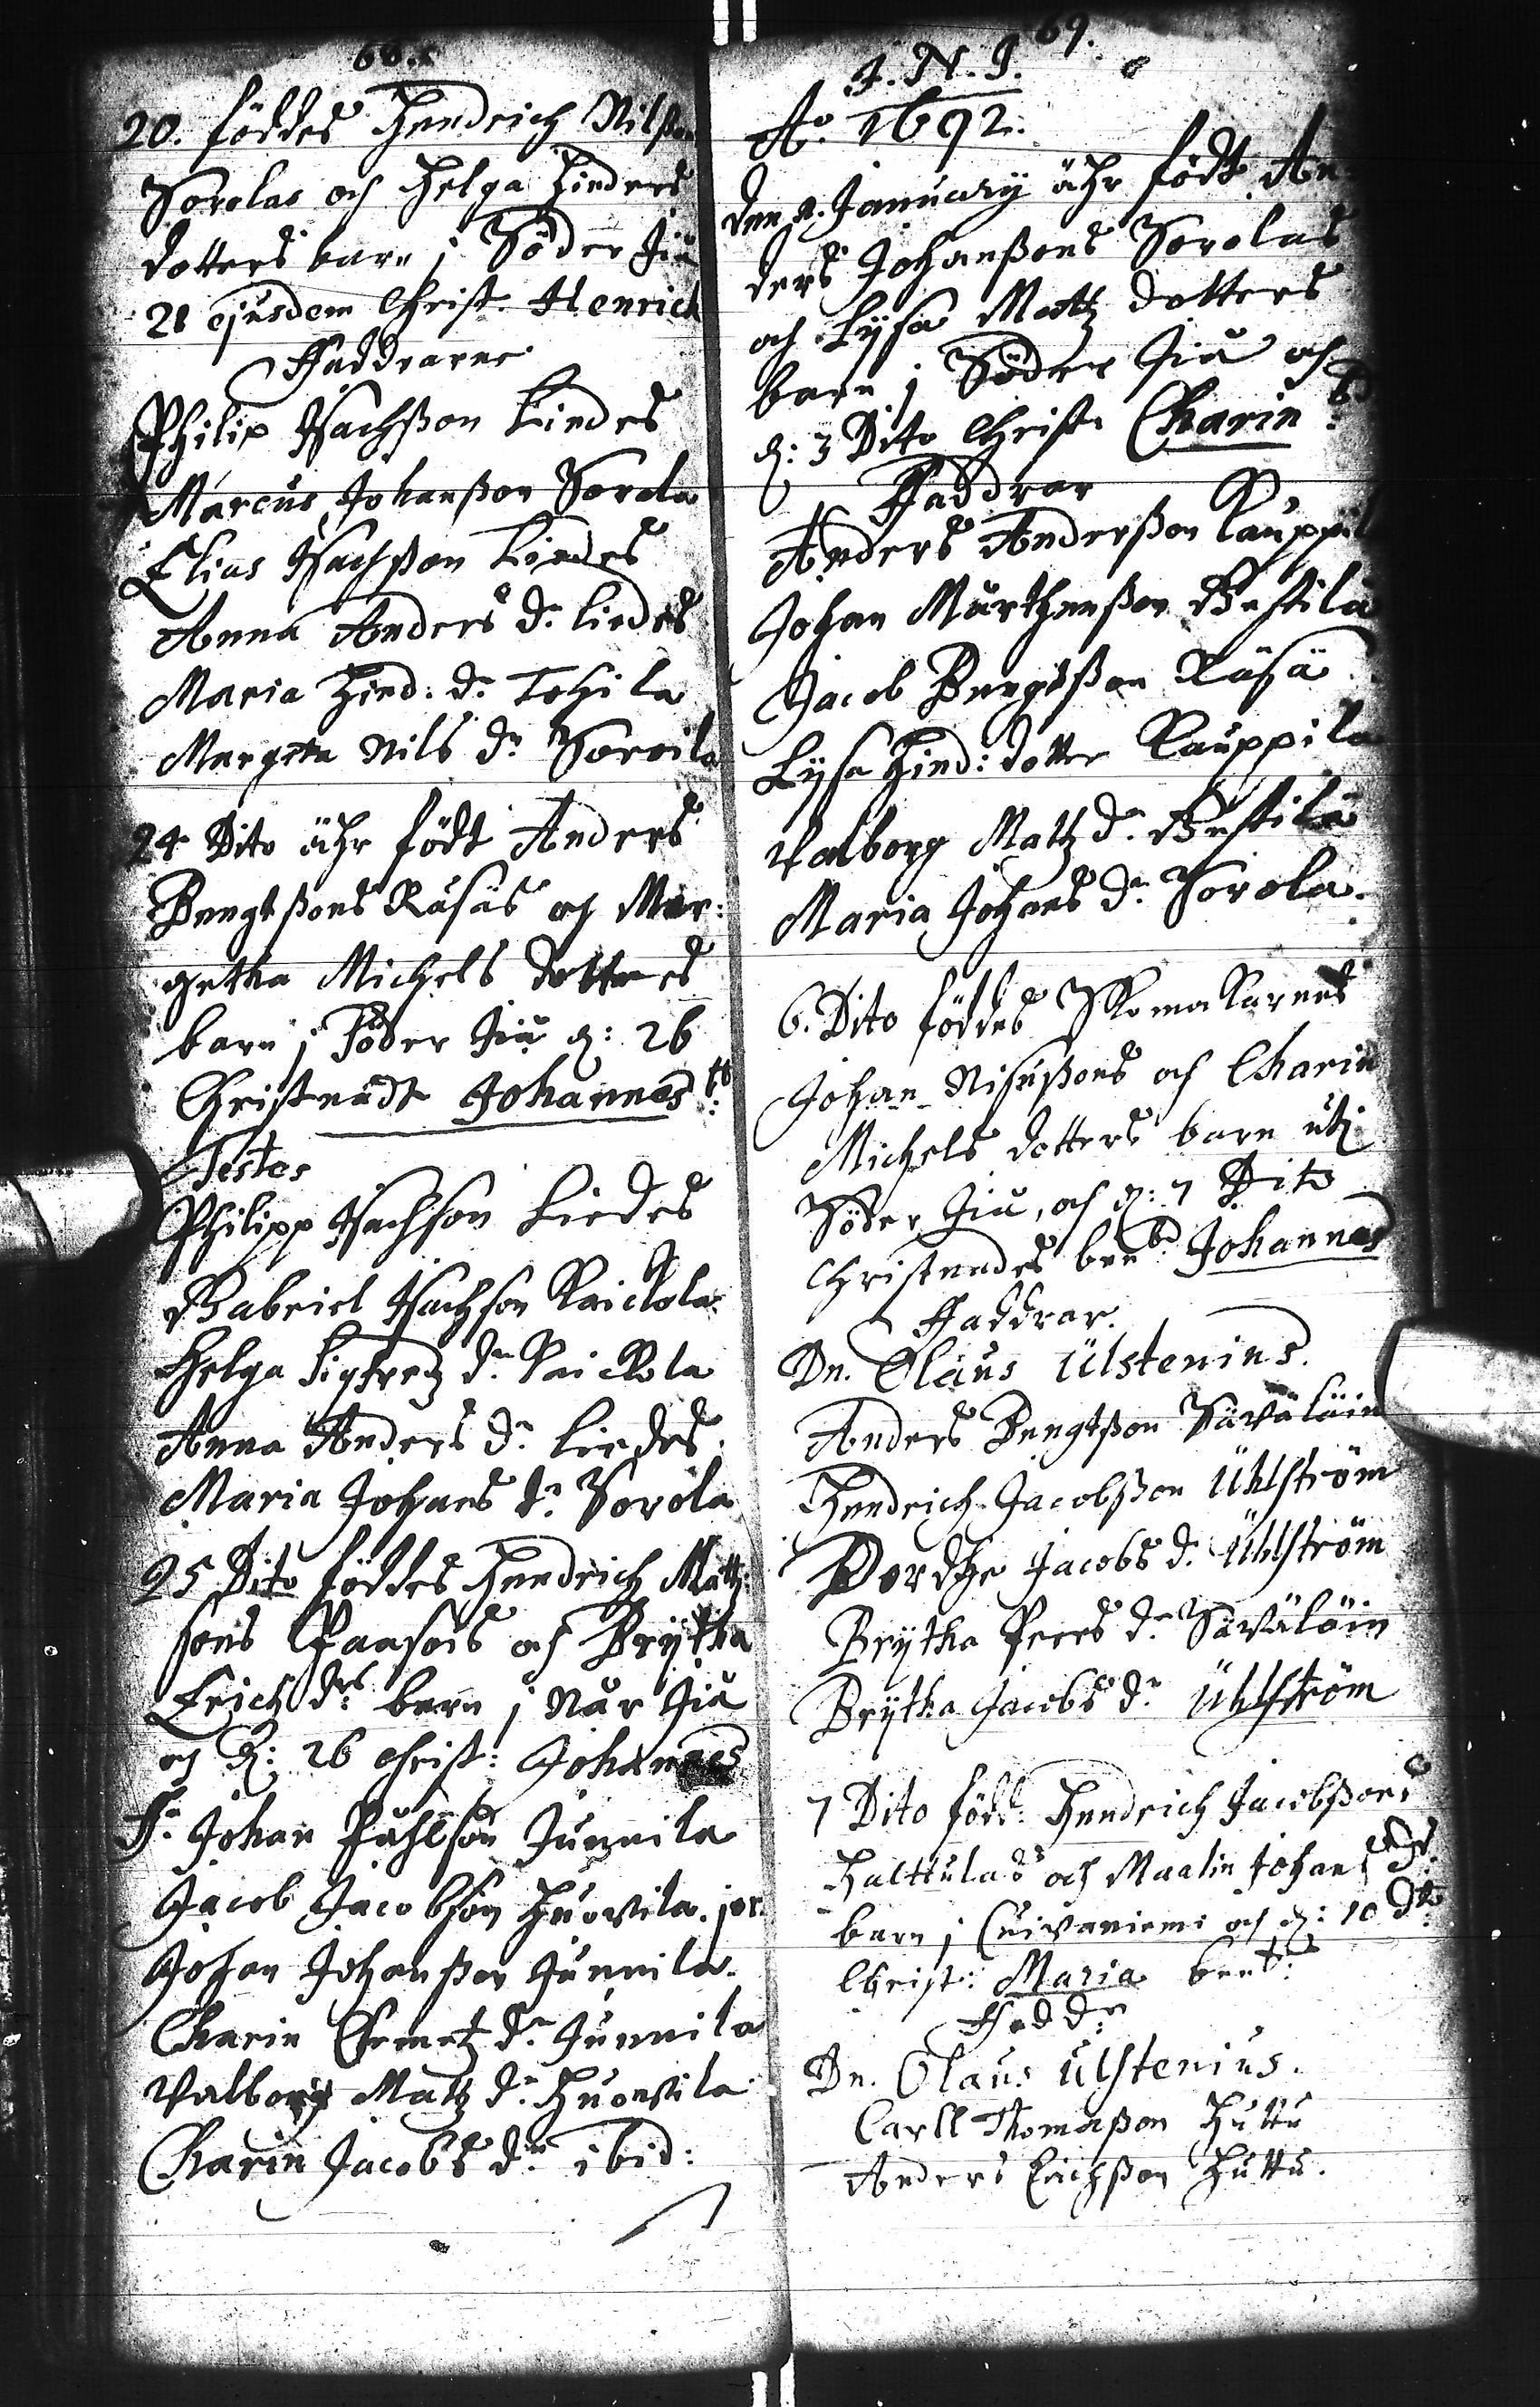 68.
20. föddes Hendrich Nilßons
Sorolas och Helga Hinders
dotters barn j Söder Jiå
21 ejusdem Christ. Henrich
Faddrarne
Philip Isachßon Liedes
Marcus Johanßon Sorola
Elias Isachßon Liedes
Anna Anders dr. Liedes
Maria Hind: dr. Tohila
Margeta Nils dr. Soroila
24 Dito ähr födt Anders
Bengtßons Räsäs och Mar:
getha Michels dotters
barn j Söder Jiå d: 26
Christnadt Johannes
Testes
Philipp Isachson Liedes
Gabriel Isachson Raickola
Helga Sigfredz dr. Raickola
Anna Anders dr. Liedes.
Maria Johans dr. Sorola
25 Dito föddes Hendrich Matz
sons Paasois och Brytha
Erich drs barn j Når Jiå
och d: 26 Christ: Johannes
F. Johan Påhlson Junnila
Jacob Jacobson Huovila. jor.
Johan Johanßon Junnila.
Charin Clemetz dr. Junnila
Valborg Matz dr. Huovila
Charin Jacobs dr. ibid:
69.
J. N. J.
Ao. 1692.
Den 2. January ähr födt An
ders Johanßons Sorolas
och Lysa Matz dotters
barn j Söder Jiå och
d: 3 Dito Christ. Charin
Faddrar
Anders Anderßon Kauppil
Johan Mårthenßon
Jacob Bengtßon Räsä
Lysa Hind: dotter Kauppila
Valborg Matz dr.
Maria Johans dr. Sorola.
6. Dito föddes Skomakarens
Johan Nilsßons och Charin
Michels dotters barn uti
Söder Jiå, och d: 7 Dito
Christnades ben.d Johannes
Faddrar.
Dn. Olaus Ulstenius.
Anders Bengtßon Säväläin
Hendrich Jacobßon Uhlström
Dordhe Jacobs d. Uhlström
Brytha Peers dr. Säväläin
Brytha Jacobs dr. Uhlström
7 Dito född: Hendrich Jacobßons
Halttulas och Maalin Johans drs.
barn j Cuivaniemi och d: 10 Dto
Christ: Maria bent:
Faddr
Dn. Olaus Ulstenius.
Carll Thomaßon Huttu
Anders Erichßon Huttu.